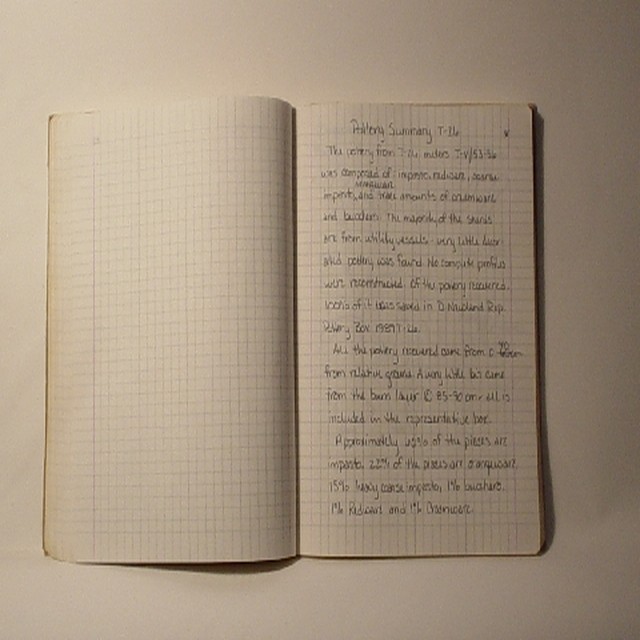 Pottery Summary T-26
The pottery from T-26 meters I-V/53-56
was composed of: impasto, redware, coarse
orangeware
impasto, and trace amounts of creamware
and bucchero. The majority of the sherds
are from utility vessels - very little decor-
ated pottery was found. No complete profiles
were reconstructed. Of the pottery recovered
100% of it was saved in D. Newland Rep.
Pottery Box 1989 T-26.
All the pottery recovered came from 0-90
from relative ground. A very little bit came
from the burn layer @ 85-90 cm + all is
included in the representative box.
Approximately % of the pieces are
impasto, 22% of the pieces are orangeware
15% heavy coarse impasto, 1% bucchero,
1% Redware and 1% Creamware.